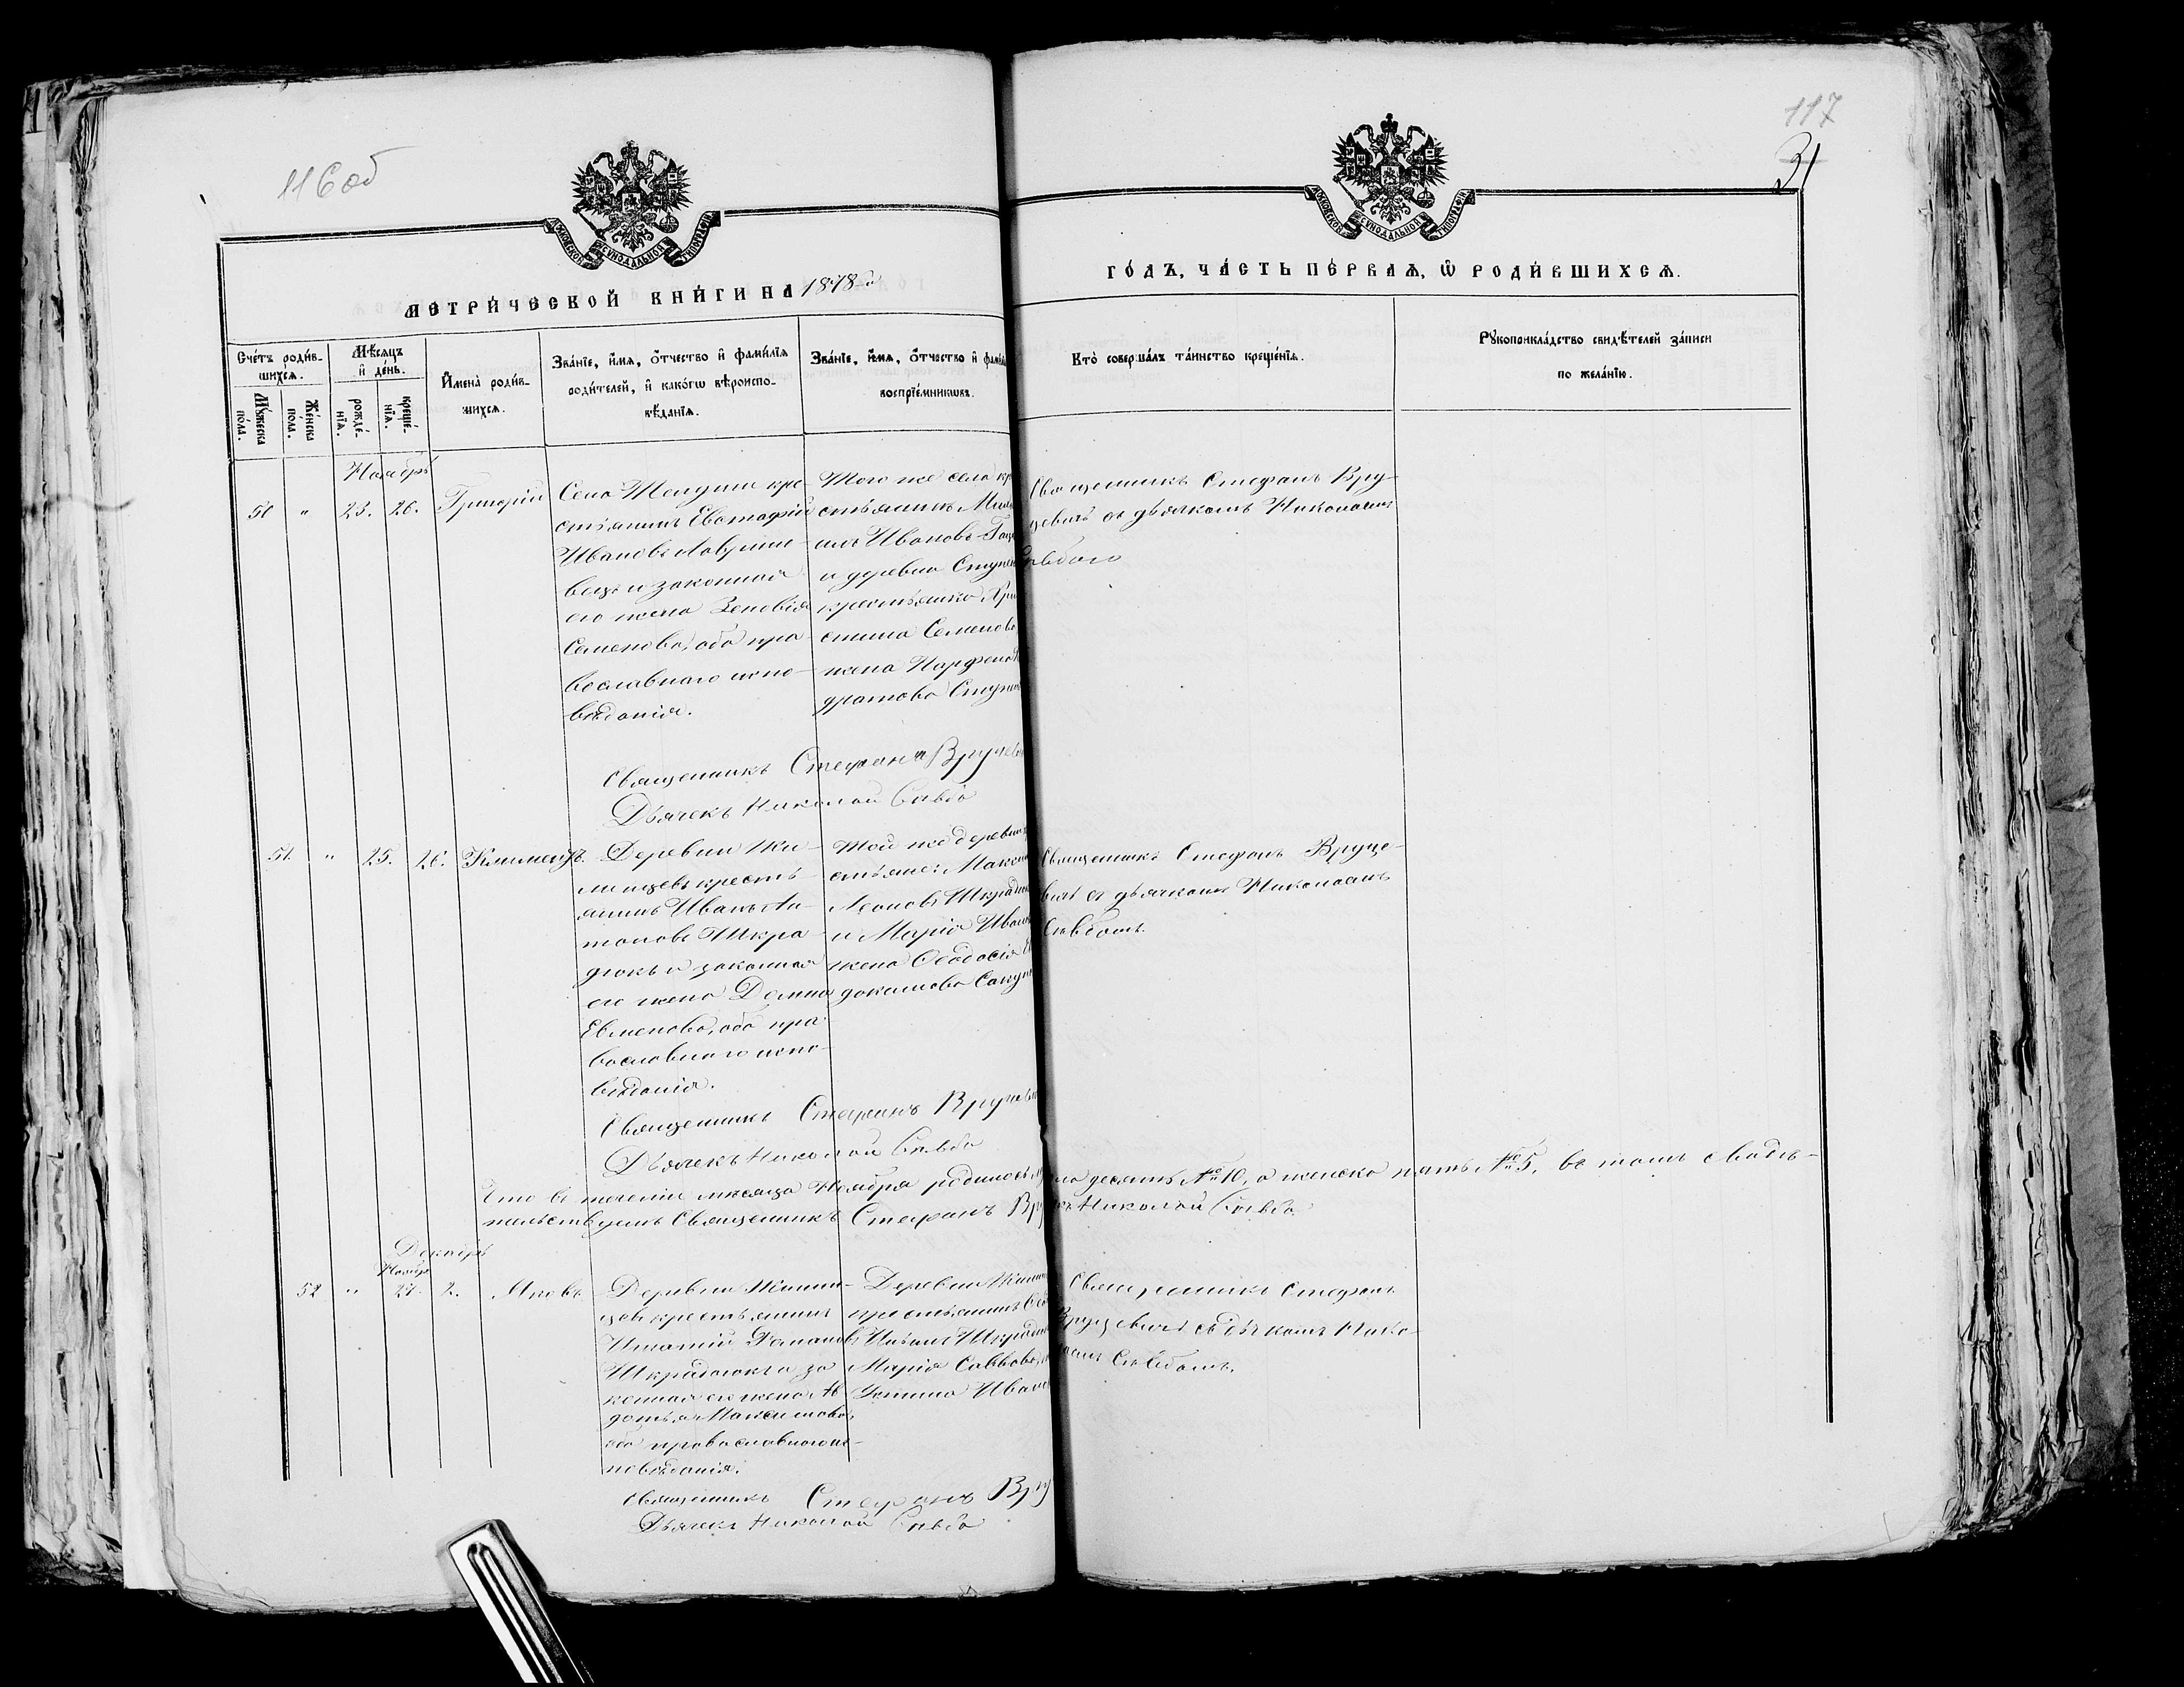 116 об
117
31
МОСКОВСКОЙ СѴНОДАЛЬНОЙ ТИПОГРАФІИ
МОСКОВСКОЙ СѴНОДАЛЬНОЙ ТИПОГРАФІИ
МЕТРИ́ЧЕСКОЙ КНИ́ГИ НА 1878-й
ГО́ДЪ, ЧА́СТЬ ПЕ́РВАѦ, Ѡ҆ РОДИ́ВШИХСѦ.
Сче́тъ роди́в-
шихсѧ.
Мꙋ́жеска по́ла.
Же́нска по́ла.
Мѣ́сѧцъ
и҆ де́нь.
рожде́-
нїѧ.
креще́-
нїѧ.
И҆мена̀ роди́в-
шихсѧ.
Зва́нїе, и҆́мѧ, ѻ҆́тчество и҆ фами́лїѧ
роди́телей, и҆ како́гѡ вѣроиспо-
вѣ́данїѧ.
Зва́нїе, и҆́мѧ, ѻ҆́тчество и҆ фами́
воспрїе́мникѡвъ.
Кто̀ соверша́лъ та́инство креще́нїѧ.
Рꙋкоприкла́дство свидѣ́телей за́писи
по жела́нїю.
Ноябрь
50 " 23. 26. Григорій
Села кре-
стьянинъ Евстафій
Ивановъ
вецъ и законная
его жена Зеновія
Семенова, оба пра-
вославнаго испо-
вѣданія.
Того же села кр
стьянинъ Миха
илъ Ивановъ
и деревни
крестьянка Хри
стина Семенова
жена
Священникъ Стефанъ Вру-
цевичъ съ дьячкомъ Николаемъ
Священникъ Стефанъ Вруцеви
Дьячекъ Николай
51. " 25. 26. Климентъ
Деревни Жи-
линцевъ кресть-
янинъ Иванъ Ан-
тоновъ Шкра-
дюкъ и законная
его жена Домна
Евменова, оба пра-
вославнаго испо-
вѣданія.
Той же деревни
стьяне: Макси
Леоновъ Шкрадю
и Марія Иванов
жена Ѳеодосія Ев
Священникъ Стефанъ Вруце-
вичъ съ дьячкомъ Николаемъ
Священникъ Стефанъ Вруцеви
Дьячекъ Николай
Что въ теченіи мѣсяца Ноября родилось ла десять № 10, а женска пять № 5, въ томъ свидѣ-
тельствуемъ Священникъ Стефанъ Вру Николай
Декабрь
Ноября
52 " 27. 2. Яковъ
Деревни Жилин-
цевъ крестьянинъ
Игнатій Романовъ
Шкрадюкъ и за-
конная его жена Ав-
дотья Максимова,
оба православнаго ис-
повѣданія.
Деревни Жилин
крестьянинъ
Шкрадю
Марія Саввова,
Устина Иванов
Священникъ Стефанъ
Вруцевичъ съ дьячкомъ Нико-
лаемъ
Священникъ Стефанъ Вру
Дьячекъ Николай